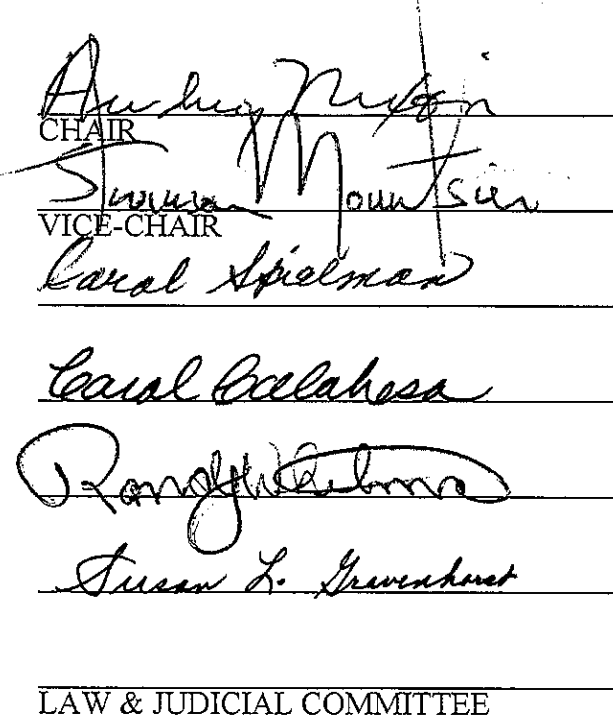 Audrey Nixon
CHAIR
Mountsier
VICE-CHAIR
Carol Spielman
Carol Calabresa
Randy Whitmore
Susan L. Gravenhorst
LAW & JUDICIAL COMMITTEE